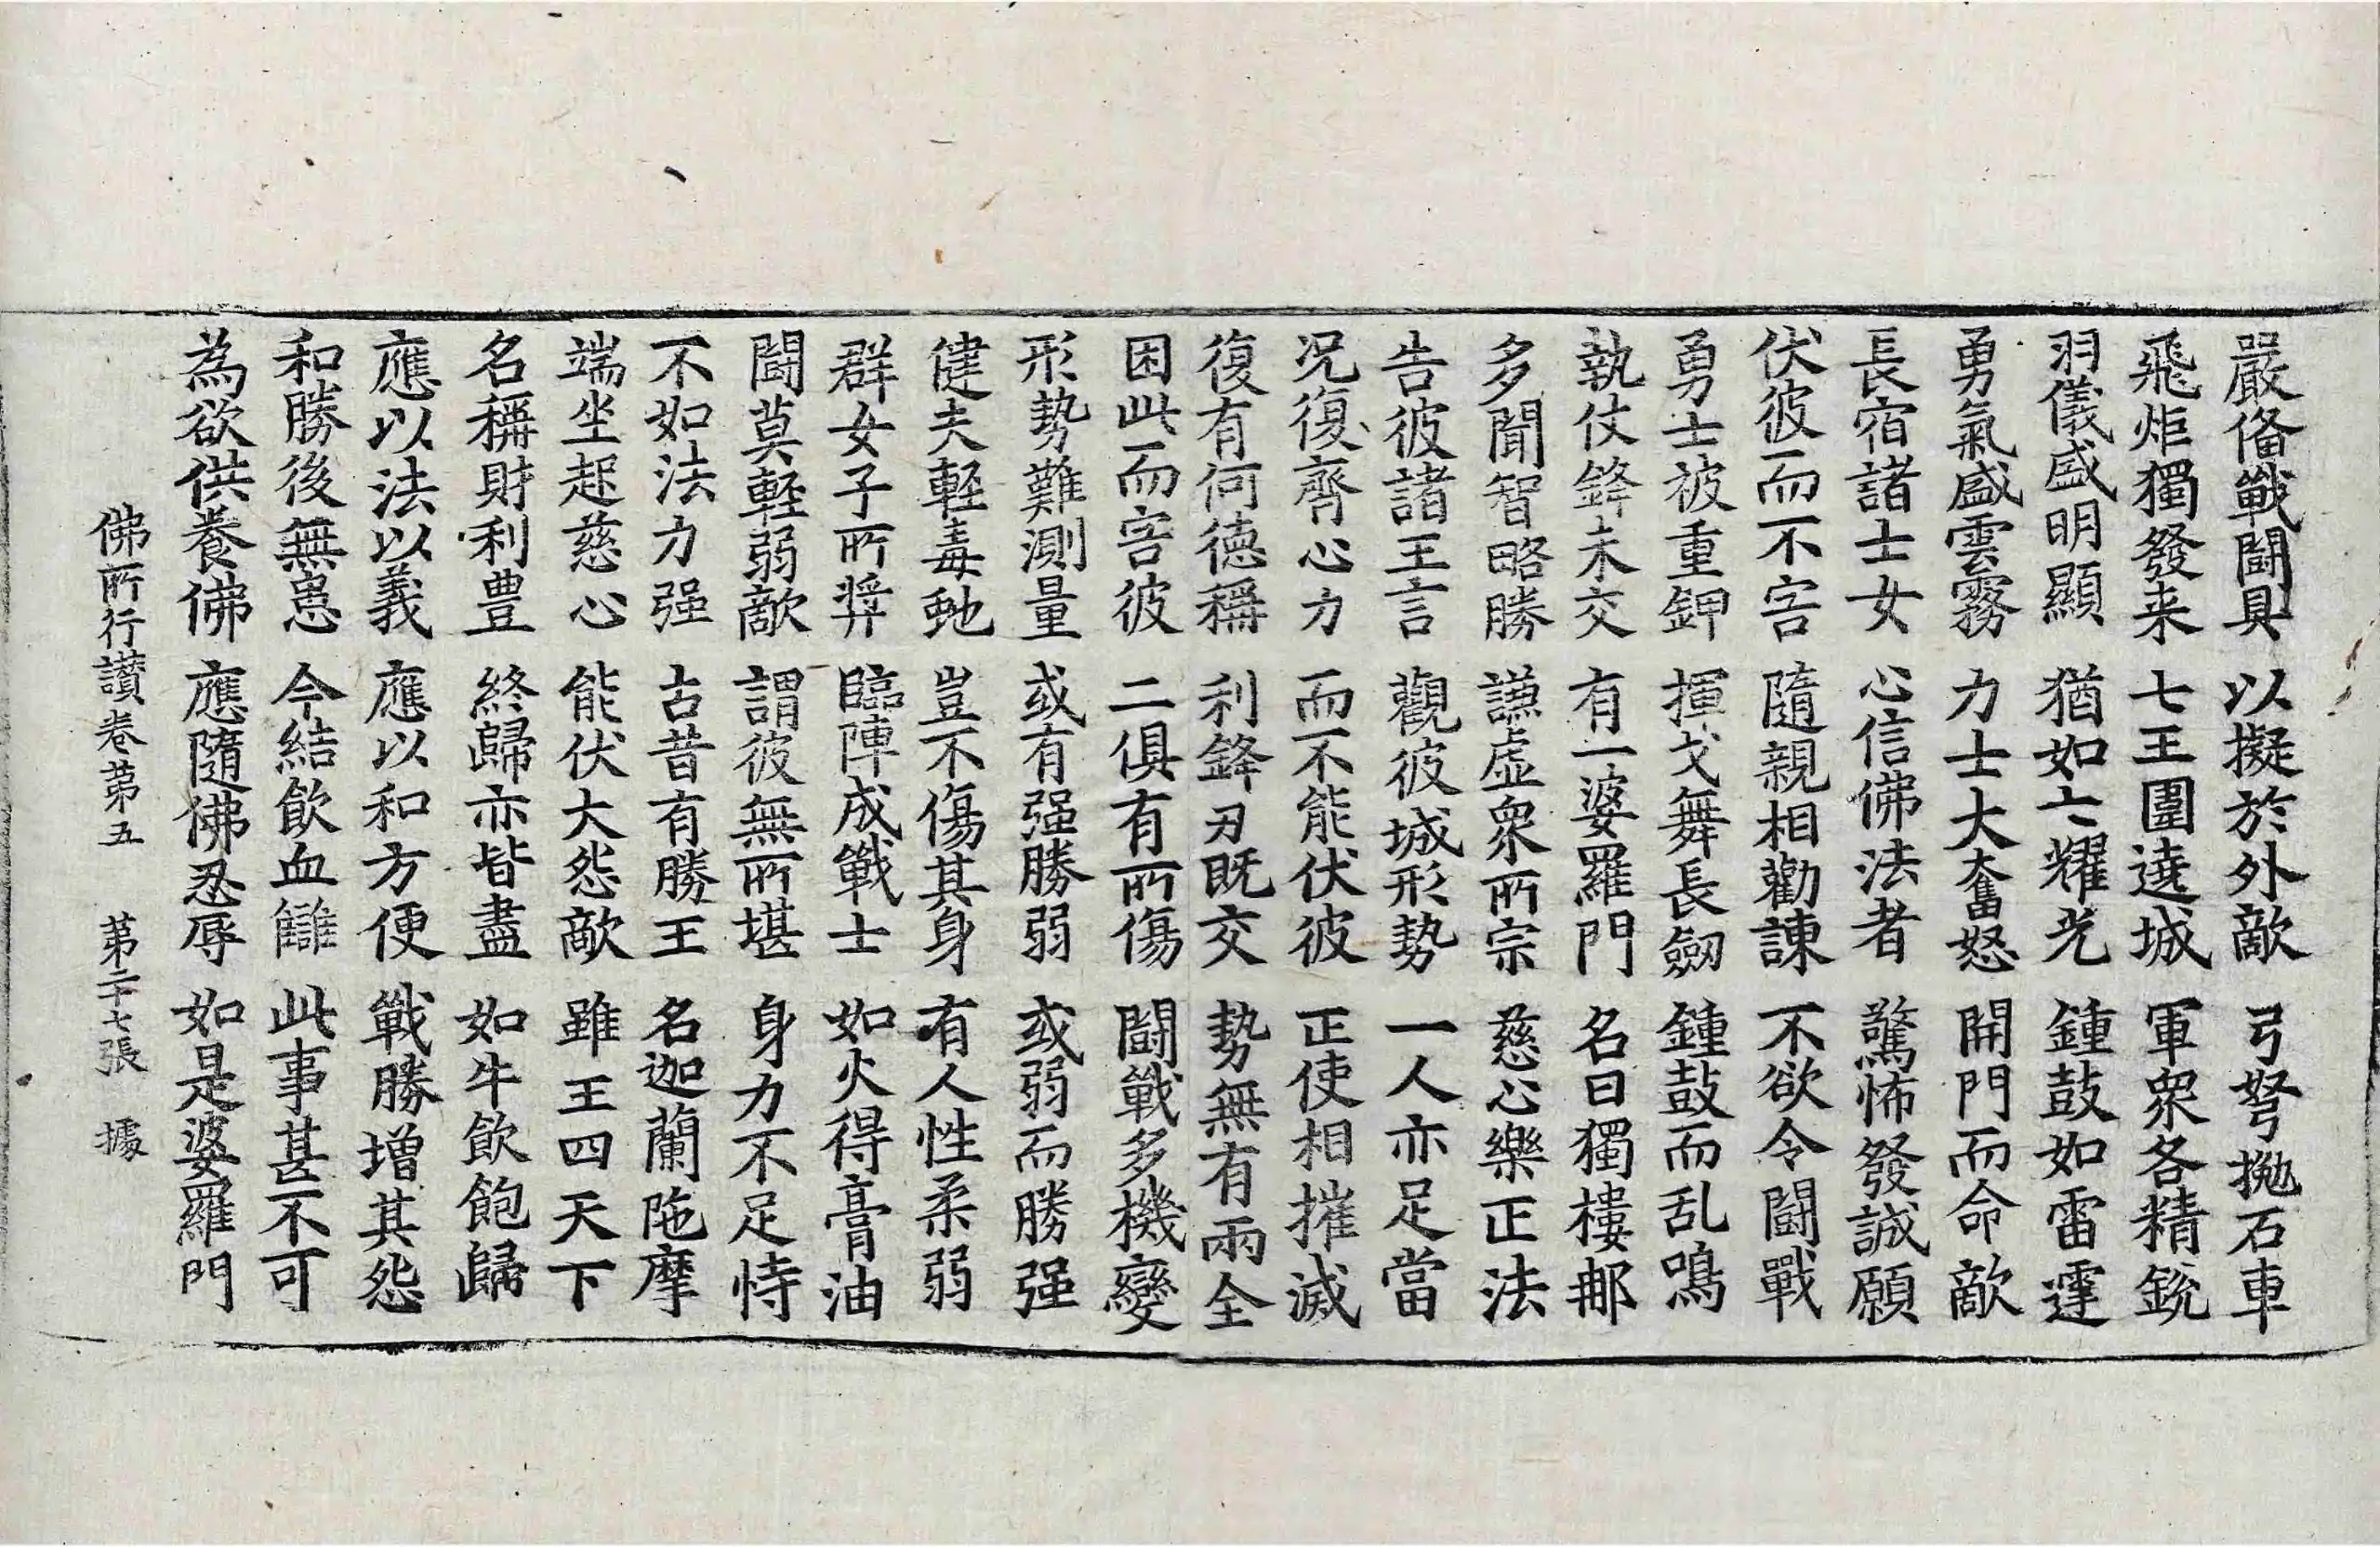 嚴俻戰闘具 以擬於外敵 弓弩抛石車
飛炬獨發来 七王圍遶城 軍衆各精銳
羽儀盛明顯 猶如七耀光 鍾鼓如雷霆
勇氣盛雲霧 力士大奮怒 開門而命敵
長宿諸士女 心信佛法者 驚怖發誠願
伏彼而不害 隨親相勸諫 不欲令闘戰
勇士被重鉀 揮戈舞長劒 鍾鼓而乱鳴
執仗鋒未交 有一婆羅門 名曰獨樓那
多聞智略勝 謙虛衆所宗 慈心樂正法
告彼諸王言 觀彼城形勢 一人亦足當
况復齊心力 而不能伏彼 正使相摧滅
復有何德稱 利鋒刃既交 勢無有兩全
因此而害彼 二俱有所傷 闘戰多機變
形勢難測量 或有强勝弱 或弱而勝强
健夫輕毒虵 豈不傷其身 有人性柔弱
群女子所獎 臨陣成戰士 如火得膏油
闘莫輕弱敵 謂彼無所堪 身力不足恃
不如法力强 古昔有勝王 名迦蘭陁摩
端坐起慈心 能伏大怨敵 雖王四天下
名稱財利豊 終歸亦皆盡 如牛飲飽歸
應以法以義 應以和方便 戰勝增其怨
和勝後無患 今結飲血讎 此事甚不可
為欲供養佛 應隨佛忍辱 如是婆羅門
佛所行讃卷第五 第二十七張 據